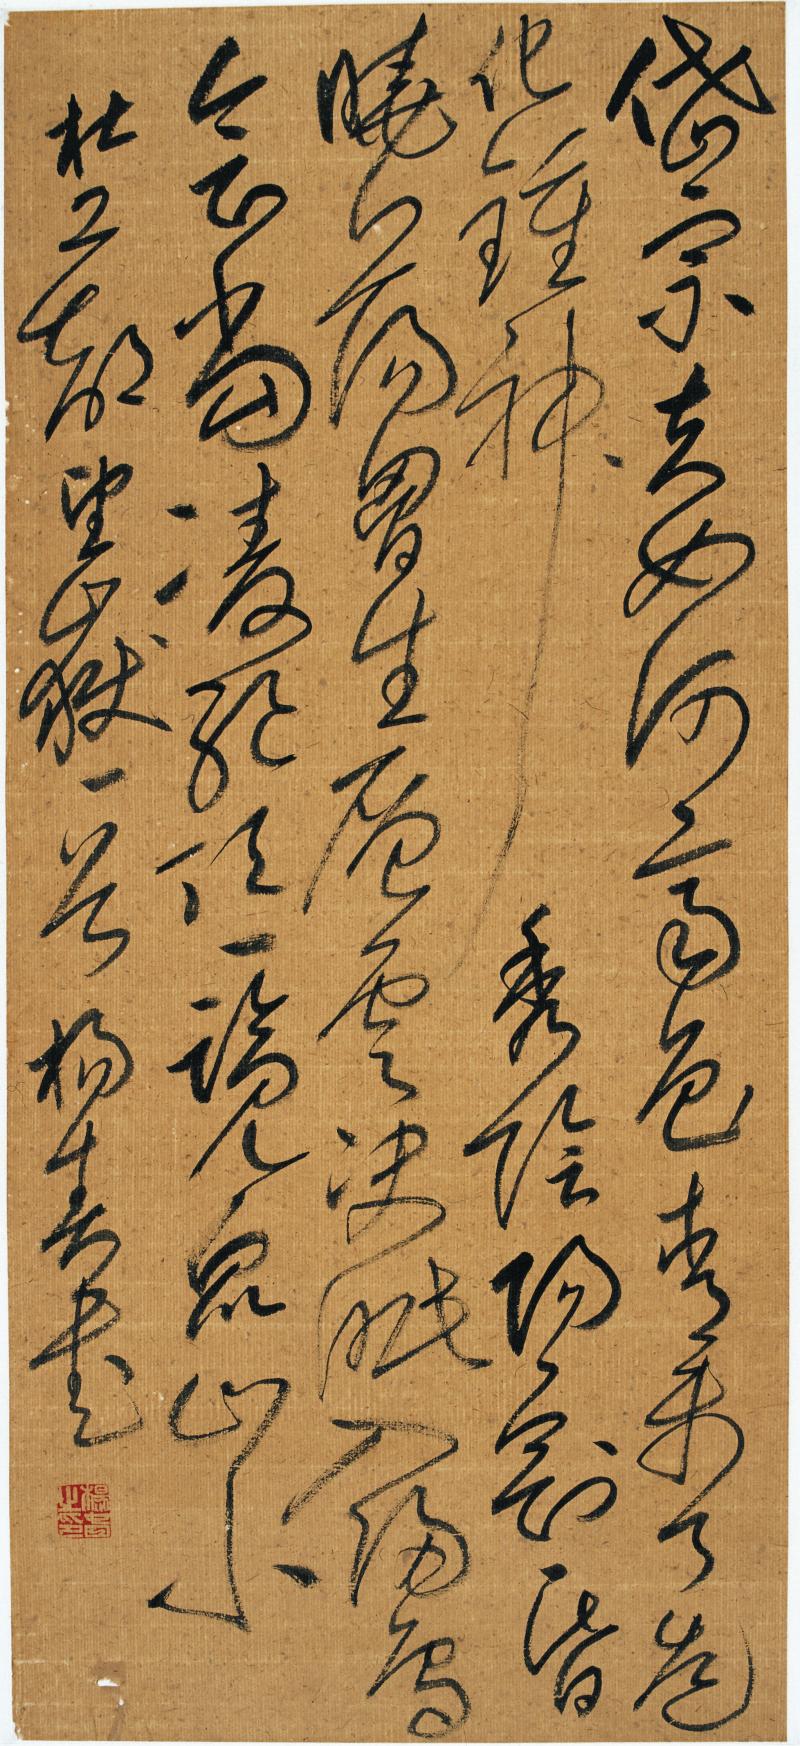 岱宗夫如何齊魯青未了造
化鍾神秀陰陽割昏曉
蕩胷生層雲決眥入歸鳥
會當凌絕頂一覽眾山小
杜工部望嶽一首 楊書